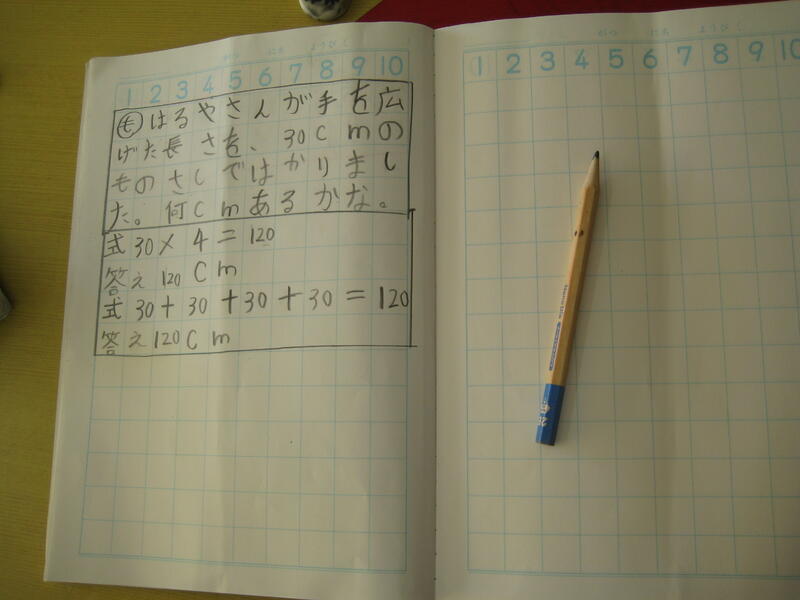 がつ にち ようび
1 2 3 4 5 6 7 8 9 10
も はるやさんが手を広
げた長さを、30cmの
ものさしではかりまし
た。何cmあるかな。
式 30×4=120
答え 120cm
式 30+30+30+30=120
答え 120cm
がつ にち ようび
1 2 3 4 5 6 7 8 9 10